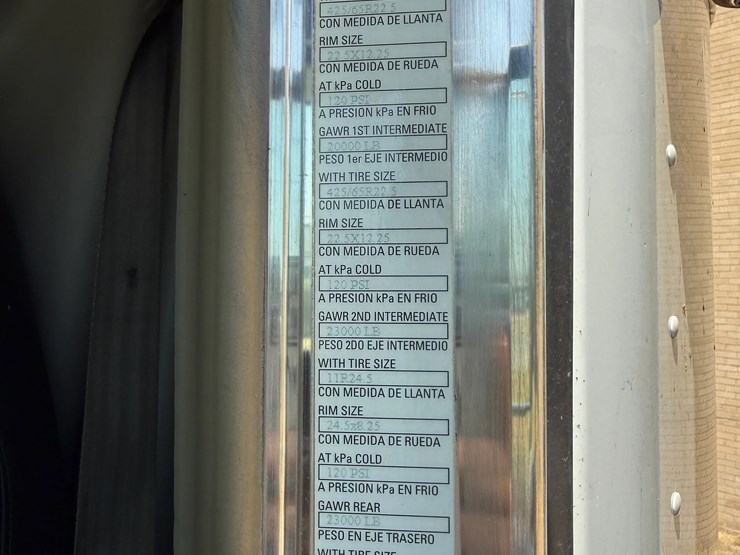 425/65R22.5
CON MEDIDA DE LLANTA
RIM SIZE
22.5X12.25
CON MEDIDA DE RUEDA
AT kPa COLD
120 PSI
A PRESION kPa EN FRIO
GAWR 1ST INTERMEDIATE
20000 LB
PESO 1er EJE INTERMEDIO
WITH TIRE SIZE
425/65R22.5
CON MEDIDA DE LLANTA
RIM SIZE
22.5X12.25
CON MEDIDA DE RUEDA
AT kPa COLD
120 PSI
A PRESION kPa EN FRIO
GAWR 2ND INTERMEDIATE
23000 LB
PESO 2DO EJE INTERMEDIO
WITH TIRE SIZE
11R24.5
CON MEDIDA DE LLANTA
RIM SIZE
24.5x8.25
CON MEDIDA DE RUEDA
AT kPa COLD
120 PSI
A PRESION kPa EN FRIO
GAWR REAR
23000 LB
PESO EN EJE TRASERO
WITH TIRE SIZE